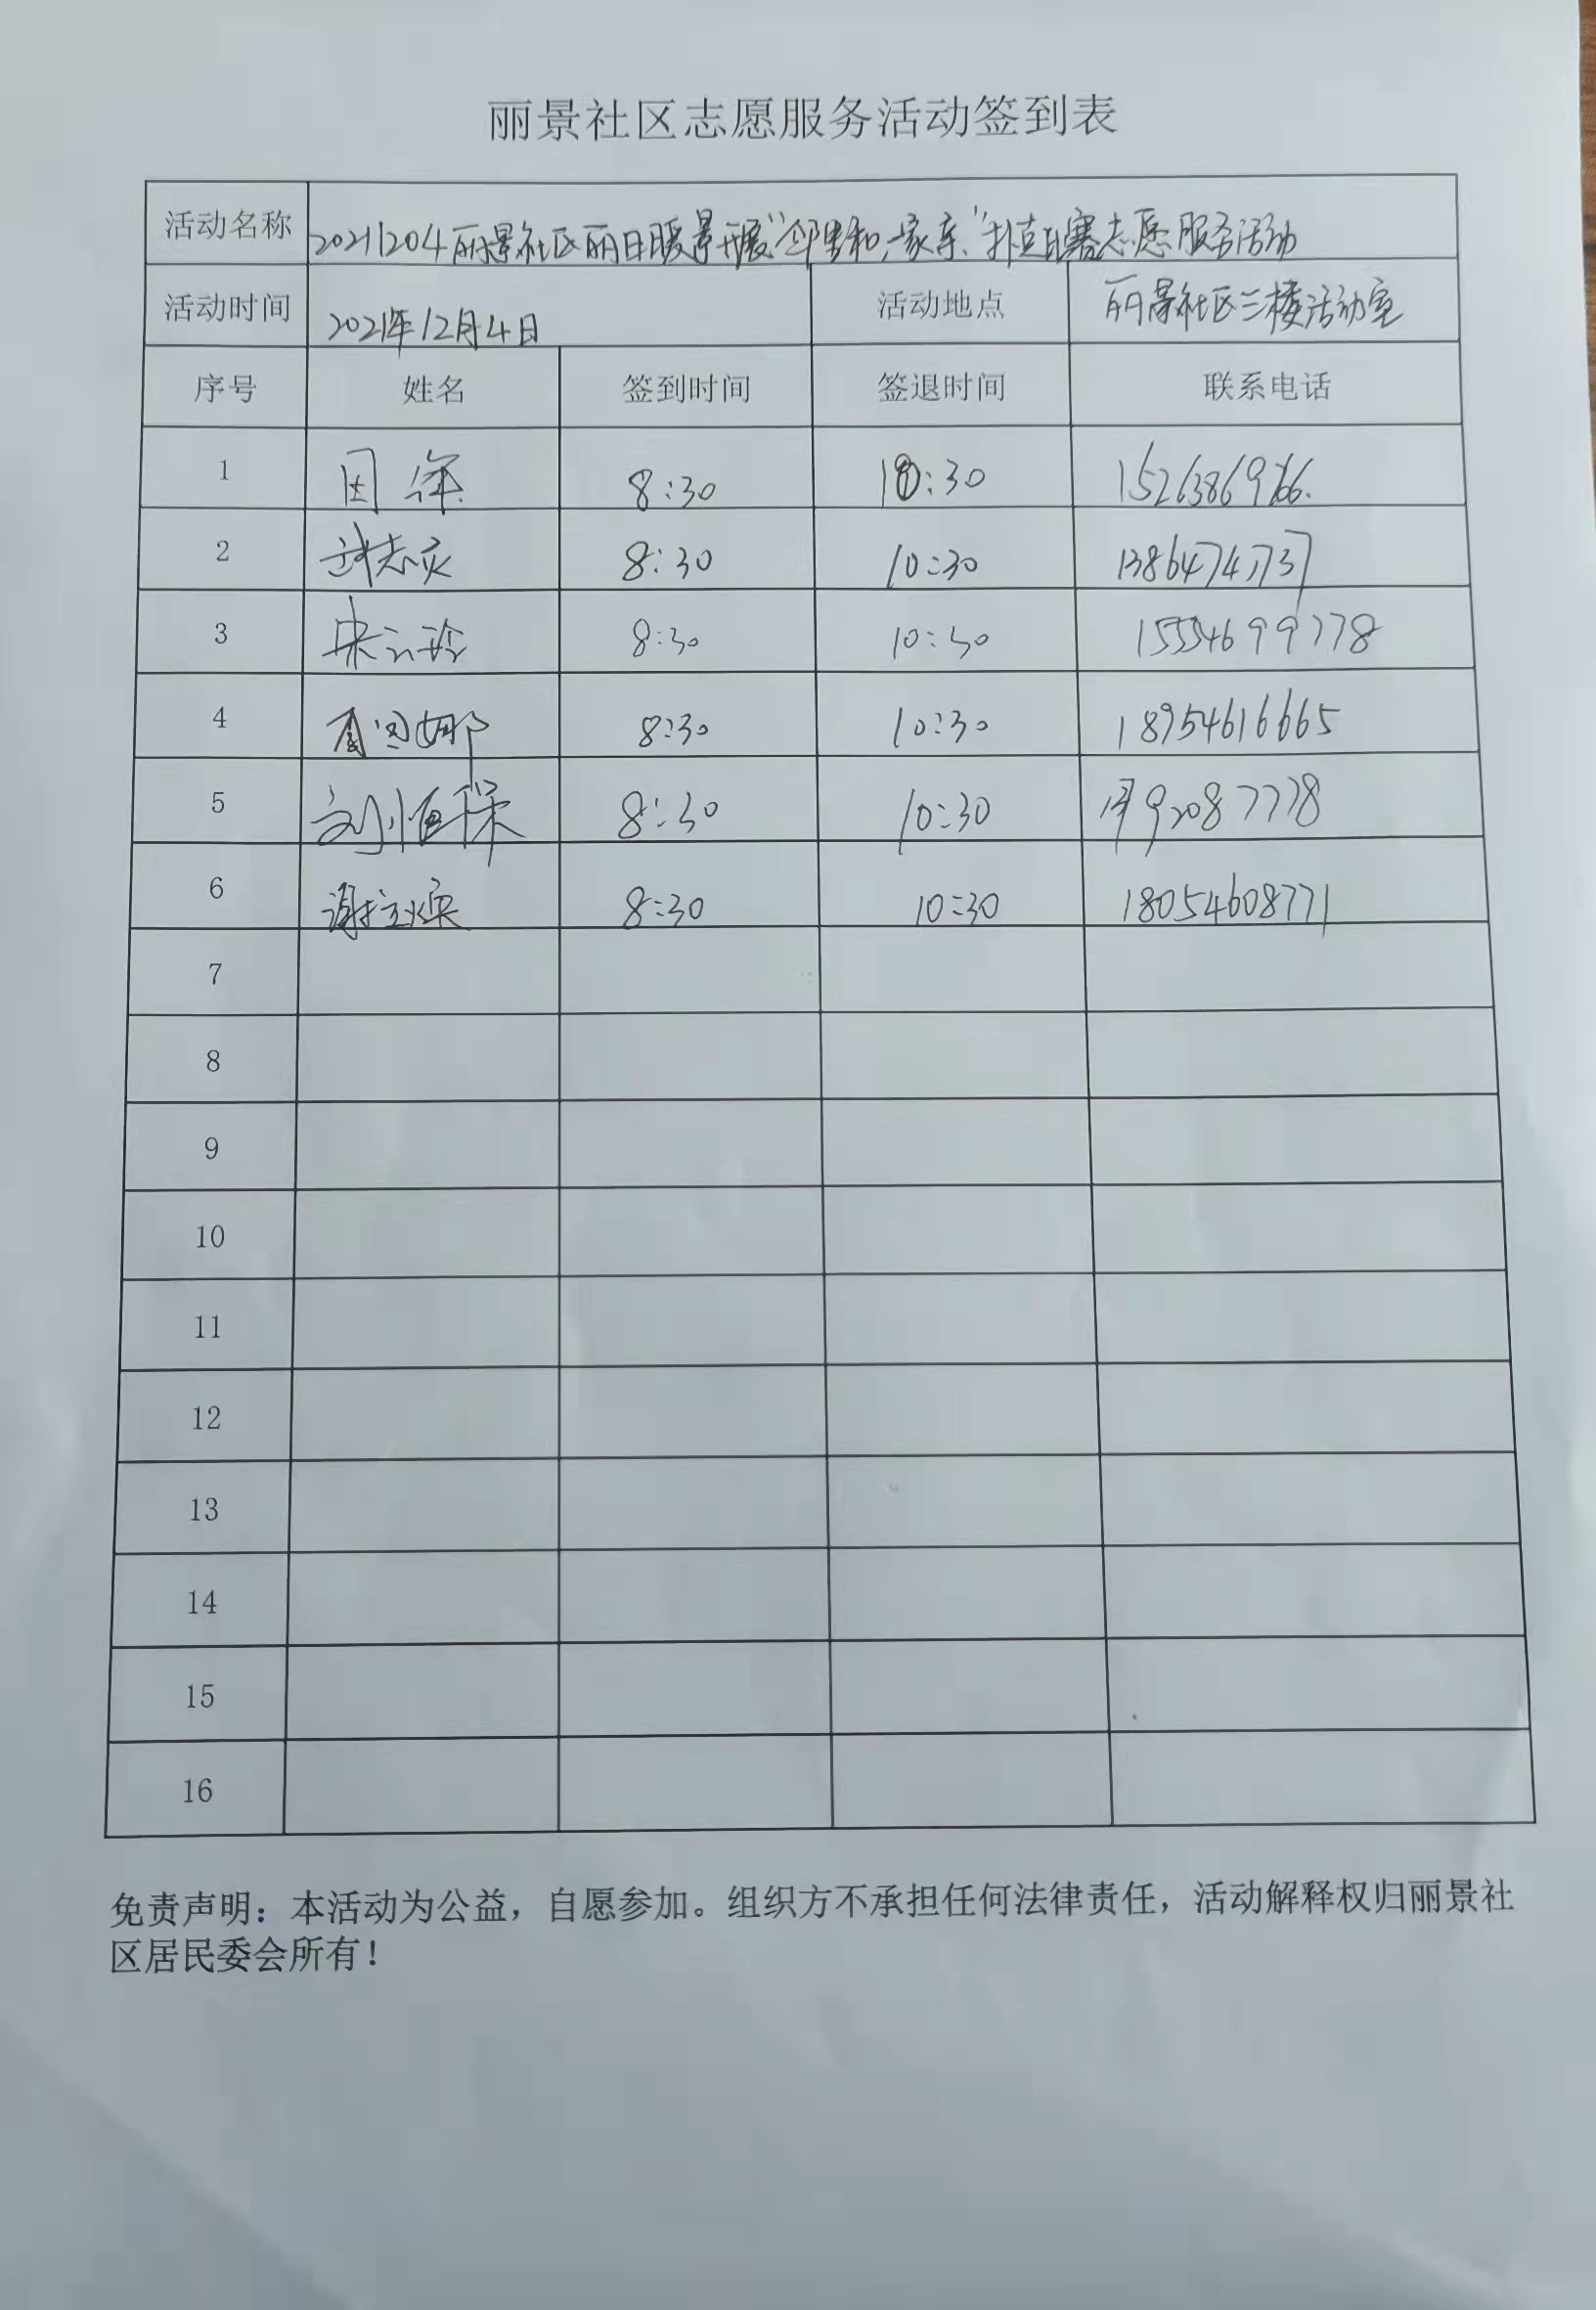 丽景社区志愿服务活动签到表
活动名称 20211204丽景社区丽日暖景开展“邻里和,一家亲”扑克比赛志愿服务活动
活动时间 2021年12月4日 活动地点 丽景社区三楼活动室
序号 姓名 签到时间 签退时间 联系电话
1 8:30 10:30
2 8:30 10:30
3 8:30 10:30 15554699778
4 8:30 10:30 18954616665
5 刘恒保 8:30 10:30
6 8:30 10:30 18054608771
7
8
9
10
11
12
13
14
15
16
免责声明：本活动为公益，自愿参加。组织方不承担任何法律责任，活动解释权归丽景社
区居民委会所有！